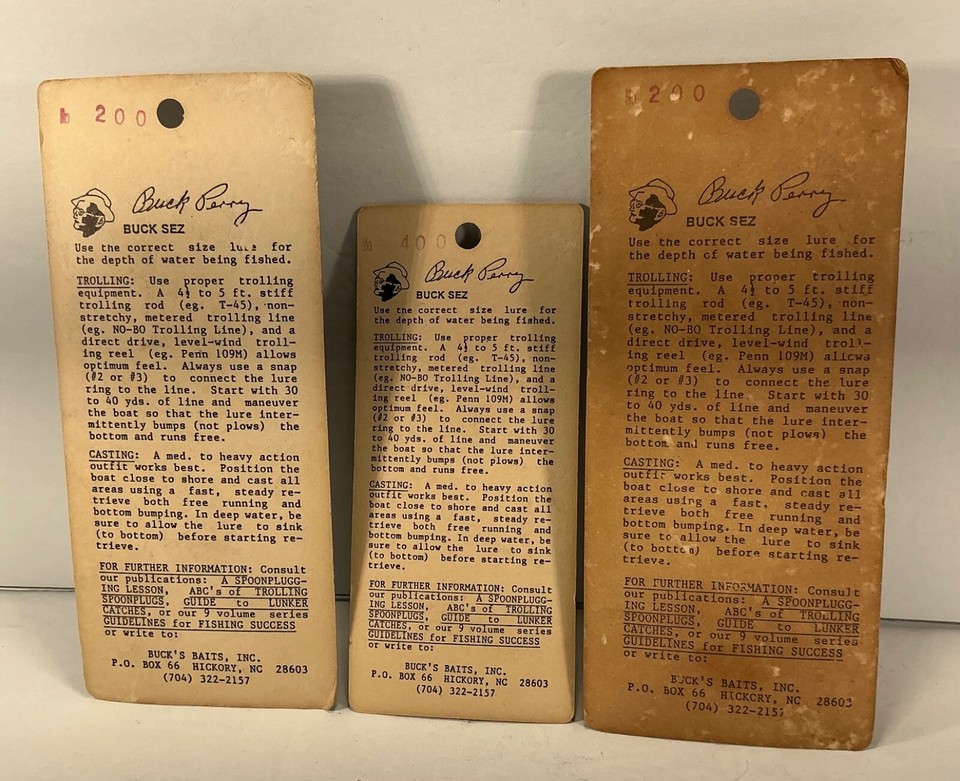 200
Buck Perry
BUCK SEZ
Use the correct size lure for
the depth of water being fished.
TROLLING: Use proper trolling
equipment. A 4½ to 5 ft. stiff
trolling rod (eg. T-45), non-
stretchy, metered trolling line
(eg. NO-BO Trolling Line), and a
direct drive, level-wind troll-
ing reel (eg. Penn 109M) allows
optimum feel. Always use a snap
(#2 or #3) to connect the lure
ring to the line. Start with 30
to 40 yds. of line and maneuver
the boat so that the lure inter-
mittently bumps (not plows) the
bottom and runs free.
CASTING: A med. to heavy action
outfit works best. Position the
boat close to shore and cast all
areas using a fast, steady re-
trieve both free running and
bottom bumping. In deep water, be
sure to allow the lure to sink
(to bottom) before starting re-
trieve.
FOR FURTHER INFORMATION: Consult
our publications: A SPOONPLUGG-
ING LESSON, ABC's of TROLLING
SPOONPLUGS, GUIDE to LUNKER
CATCHES, or our 9 volume series
GUIDELINES for FISHING SUCCESS
or write to:
BUCK'S BAITS, INC.
P.O. BOX 66 HICKORY, NC 28603
(704) 322-2157
400
Buck Perry
BUCK SEZ
Use the correct size lure for
the depth of water being fished.
TROLLING: Use proper trolling
equipment. A 4½ to 5 ft. stiff
trolling rod (eg. T-45), non-
stretchy, metered trolling line
(eg. NO-BO Trolling Line), and a
direct drive, level-wind troll-
ing reel (eg. Penn 109M) allows
optimum feel. Always use a snap
(#2 or #3) to connect the lure
ring to the line. Start with 30
to 40 yds. of line and maneuver
the boat so that the lure inter-
mittently bumps (not plows) the
bottom and runs free.
CASTING: A med. to heavy action
outfit works best. Position the
boat close to shore and cast all
areas using a fast, steady re-
trieve both free running and
bottom bumping. In deep water, be
sure to allow the lure to sink
(to bottom) before starting re-
trieve.
FOR FURTHER INFORMATION: Consult
our publications: A SPOONPLUGG-
ING LESSON, ABC's of TROLLING
SPOONPLUGS, GUIDE to LUNKER
CATCHES, or our 9 volume series
GUIDELINES for FISHING SUCCESS
or write to:
BUCK'S BAITS, INC.
P.O. BOX 66 HICKORY, NC 28603
(704) 322-2157
200
Buck Perry
BUCK SEZ
Use the correct size lure for
the depth of water being fished.
TROLLING: Use proper trolling
equipment. A 4½ to 5 ft. stiff
trolling rod (eg. T-45), non-
stretchy, metered trolling line
(eg. NO-BO Trolling Line), and a
direct drive, level-wind troll-
ing reel (eg. Penn 109M) allows
optimum feel. Always use a snap
(#2 or #3) to connect the lure
ring to the line. Start with 30
to 40 yds. of line and maneuver
the boat so that the lure inter-
mittently bumps (not plows) the
bottom and runs free.
CASTING: A med. to heavy action
outfit works best. Position the
boat close to shore and cast all
areas using a fast, steady re-
trieve both free running and
bottom bumping. In deep water, be
sure to allow the lure to sink
(to bottom) before starting re-
trieve.
FOR FURTHER INFORMATION: Consult
our publications: A SPOONPLUGG-
ING LESSON, ABC's of TROLLING
SPOONPLUGS, GUIDE to LUNKER
CATCHES, or our 9 volume series
GUIDELINES for FISHING SUCCESS
or write to:
BUCK'S BAITS, INC.
P.O. BOX 66 HICKORY, NC 28603
(704) 322-2157